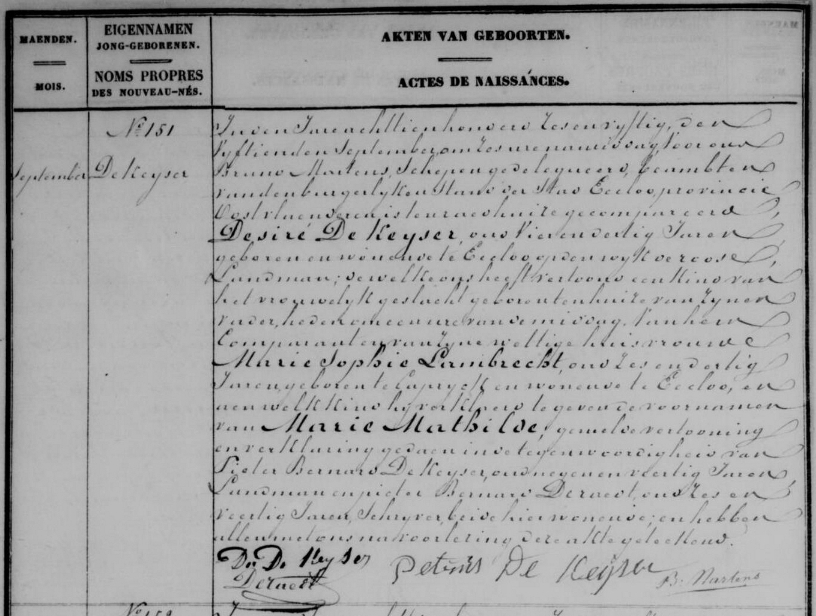 MAENDEN.
MOIS.
EIGENNAMEN
JONG-GEBORENEN.
NOMS PROPRES
DES NOUVEAU-NÉS.
AKTEN VAN GEBOORTEN.
ACTES DE NAISSANCES.
N° 151
September
De Keyser
In den Jare achttien honderd Zes en vyftig, den
Vyftienden September, om Zes ure namiddag voor ons
Bruno Martens, Schepen gedelegueerd, beambten
van den burgerlyken Stand der Stad Eecloo, provincie
Oostvlaenderen, is ten raedhuize gecompareerd
Desiré De Keyser, oud Vier en dertig Jaren,
geboren en wonende te Eecloo op den wyk de roose,
Landman; dewelke ons heeft vertoond een Kind van
het vrouwelyk geslacht geboren ten huize van Zynen
vader, heden om een ure van de middag, van hem
Comparant en van Zyne wettige huisvrouwe
Marie Sophie Lambrecht, oud Zes en dertig
Jaren geboren te Capryck en wonende te Eecloo, en
aen welk Kind hy verklaerd te geven de voornamen
van Marie Mathilde, gemelde vertooning
en verklaring gedaen in de tegenwoordigheid van
Pieter Bernard De Keyser, oud negen en veertig Jaren
Landman en pieter Bernard Deraedt, oud Zes en
veertig Jaren, Schryver, beide hier wonende; en hebben
allen met ons na voorlezing dezen akte geteekend.
De Keyser
Deraedt
petrus De Keyser
B. Martens